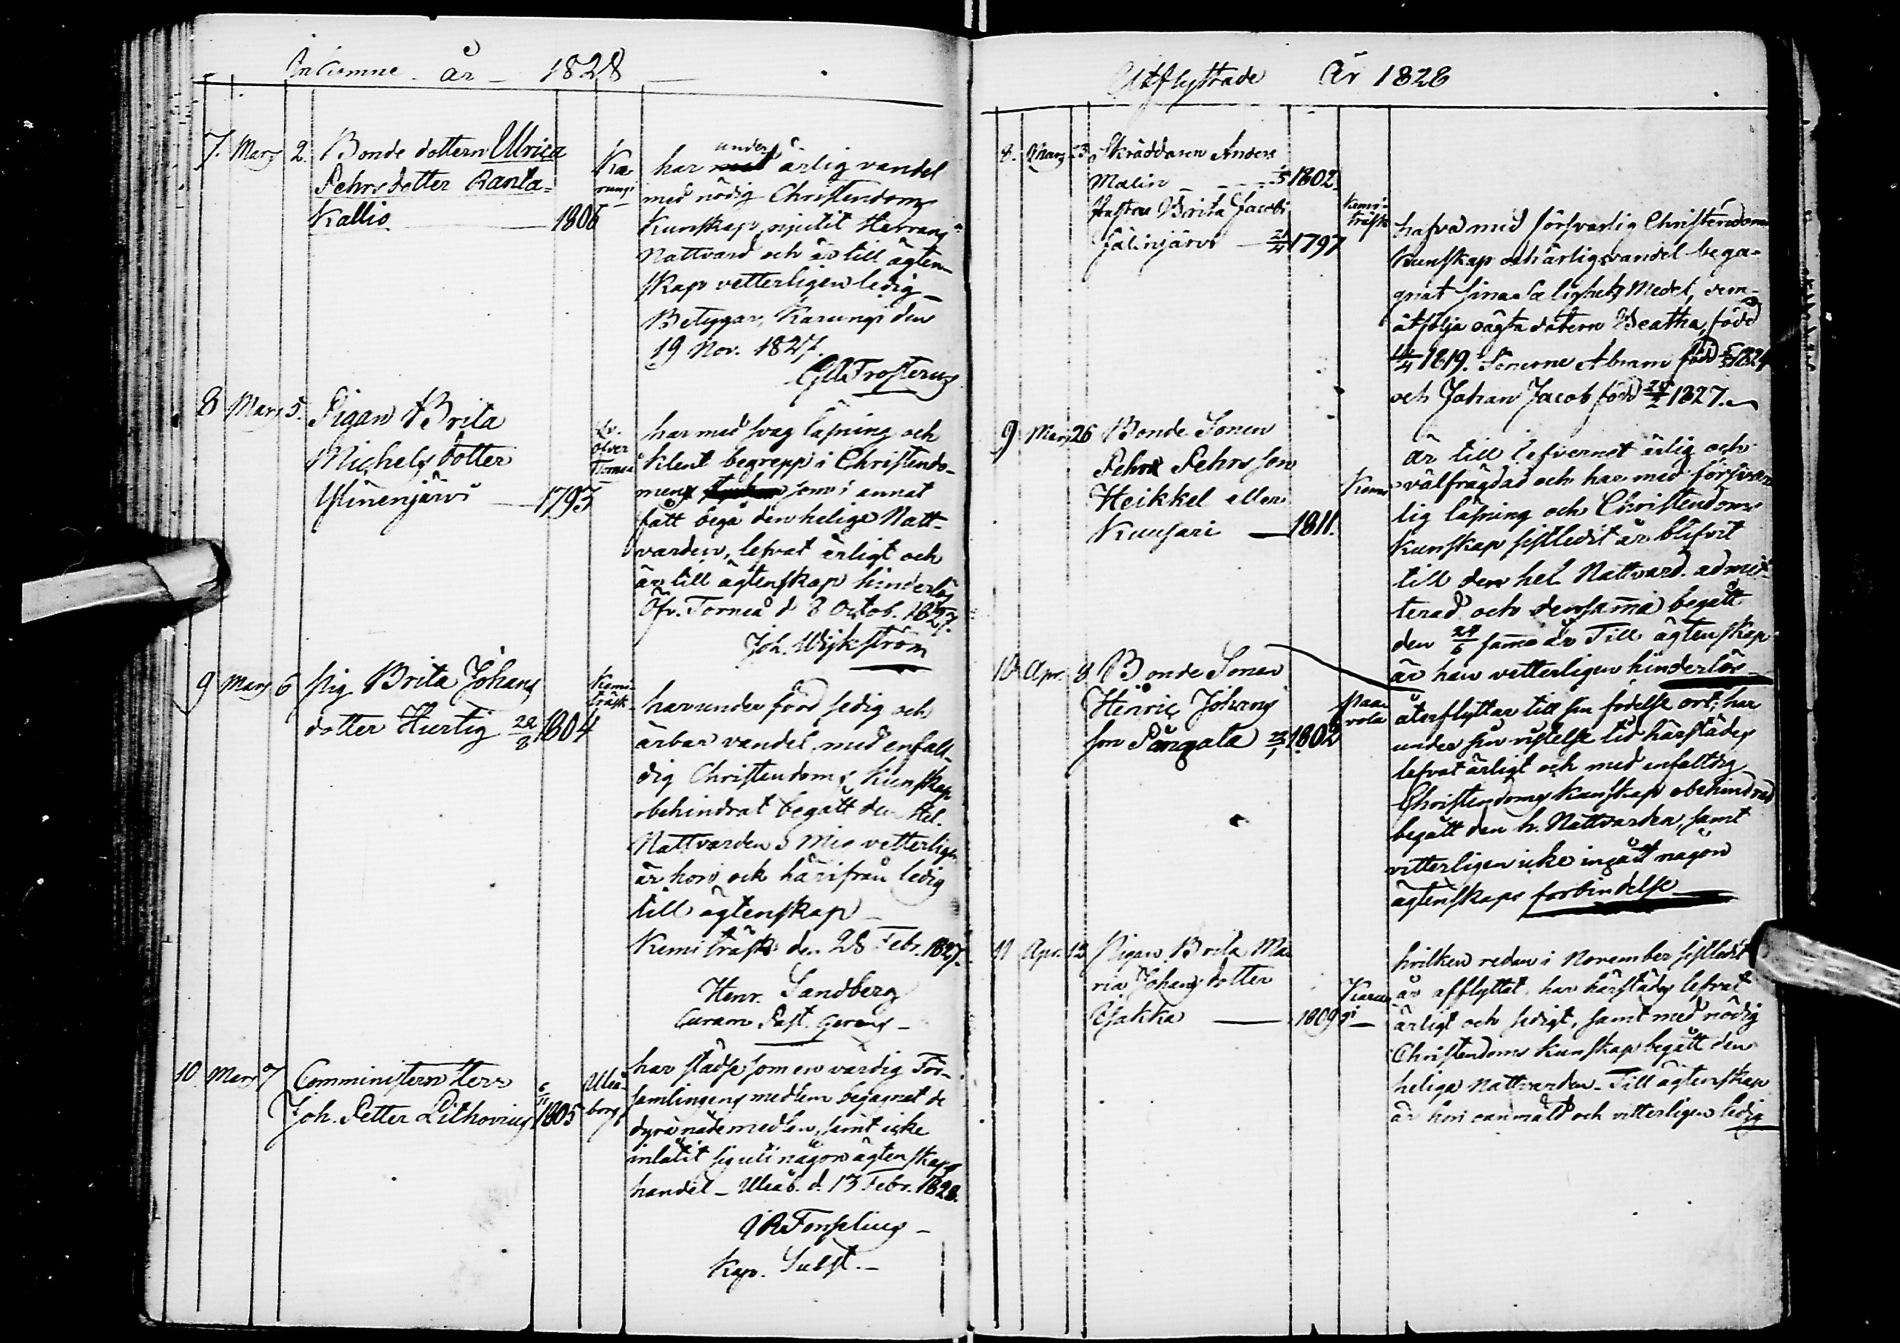 Inkomne år 1828
7. Mars 2. Bonde dottern Ulrica
Pehrs dotter Ranta-
kallio 1806
Ka-
rungi
har under årlig vandel
med nödig Christendoms
Kunskap njutit Herrans
Nattvard och är till ägten-
skap vetterligen ledig
Betygar, Karungi den
19 Nov. 1827.
8 Mars 5. Pigan Brita
Michels dotter
Ylinenjärvi 1793
öfver
Torneå
har med svag läsning och
klent begrepp i Christendo-
men som i annat
fått begå den helige Natt-
varden, lefvat ärligt och
är till ägtenskap hinderlös
Öfv. Torneå d 8 Octob. 1827.
Joh. Wijkström
9 Mars 6 Pig. Brita Johans
dotter Hurtig 22/8 1804
Kemi
träsk
har under förd sedig och
ärbar vandel, med enfall-
dig Christendoms Kunskap
obehindrat begått den Hel.
Nattvarden. Mig vetterligen
är hon ock härifrån ledig
till ägtenskap
Kemi träsk den 28 Febr. 1827.
Henr. Sandberg
Curam Past. Gerens
10 Mars 7 Comministern Herr
Joh. Petter Lithovius 6/11 1805
Uleå-
borg
har städse som en värdig För-
samlingens medlem begagnat de
dyra nådemedlen, samt icke
inlåtit sig uti någon ägtenskaps
handel - Uleåb. d. 13 Febr. 1828.
Kap. Subst.
Utflyttade År 1828
8. Mars 23 Skräddaren Anders
Malin 1802
Hustru Brita Jacobs
Jälinjärvi 21/4 1797
Kemi-
träsk
hafva med försvarlig Christendoms
Kunskap och ärlig vandel bega-
gnat sina Salighets Medel, dem
åtfölja ägta dotern Beatha, född
1819. Sonerne Abram född 1824
och Johan Jacob född 1827.
9 Mars 26 Bonde Sonen
Pehr Pehrsson
Heikkel eller
Kuusari 1811.
Kemi
är till lefvernet ärlig och
välfrägdad och har med försvar-
lig läsning och Christendoms
Kunskap sistledit år blifvit
till den hel. Nattvard. admit-
terad och densamma begått
den 24/6 samma år Till ägtenskap
är han vetterligen hinderlös
10 Apr. 8 Bonde Sonen
Henric Johans
son Pangala 23/7 1802
Paa-
vola
återflyttar till sin födelse ort: har
under sin vistelse tid härstädes
lefvat ärligt och med enfaldig
Christendoms Kunskap obehindrad
begått den h. Nattvarden, samt
vitterligen icke ingått någon
ägtenskaps förbindelse
11 Apr. 12 Pigan Brita Ma-
ria Johans dotter
1809
Karun-
gi
hvilken redan i November sistledit
år afflyttat, har härstädes lefvat
ärligt och sedigt, samt med nödig
Christendoms Kunskap begått den
helige nattvarden - Till ägtenskap
är hon oanmäld och vitterligen ledig